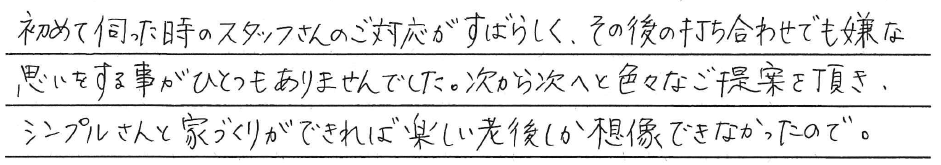 初めて伺った時のスタッフさんのご対応がすばらしく、その後の打ち合わせでも嫌な
思いをする事がひとつもありませんでした。次から次へと色々なご提案を頂き、
シンプルさんと家づくりができれば楽しい老後しか想像できなかったので。